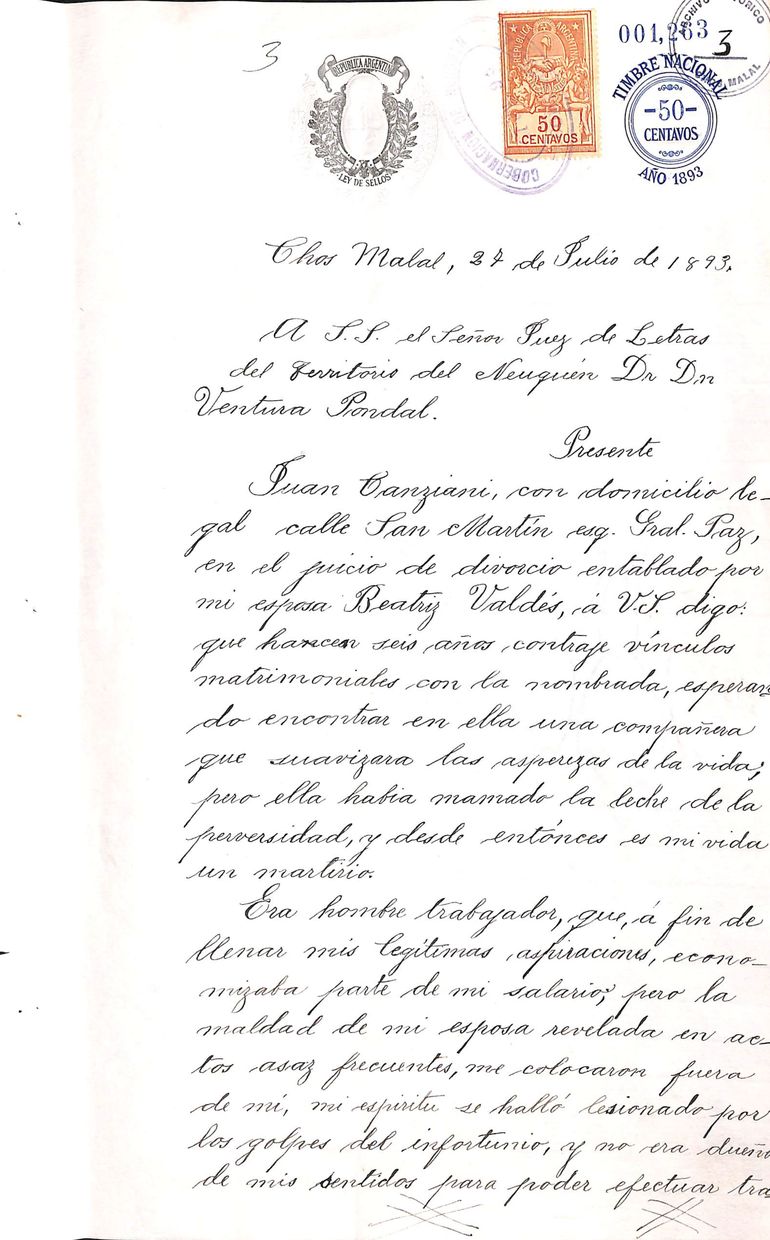 3
REPUBLICA ARGENTINA
LEY DE SELLOS
REPUBLICA ARGENTINA
50
CENTAVOS
GOBERNACION
001,263
3
MALAL
TIMBRE NACIONAL
-50-
CENTAVOS
AÑO 1893
Chos Malal, 27 de Julio de 1893.
A S.S. el Señor Juez de Letras
del Territorio del Neuquén Dr Dn
Ventura Pondal.
Presente
Juan Canziani, con domicilio le-
gal calle San Martín esq. Gral. Paz,
en el juicio de divorcio entablado por
mi esposa Beatriz Valdés, á V.S. digo:
que hancen seis años contraje vínculos
matrimoniales con la nombrada, esperan=
do encontrar en ella una compañera
que suavizara las asperezas de la vida;
pero ella habia mamado la leche de la
perversidad, y desde entónces es mi vida
un martirio.
Era hombre trabajador, que, á fin de
llenar mis legítimas aspiraciones, econo-
mizaba parte de mi salario; pero la
maldad de mi esposa revelada en ac-
tos asaz frecuentes, me colocaron fuera
de mí, mi espíritu se halló lesionado por
los golpes del infortunio, y no era dueño
de mis sentidos para poder efectuar tra